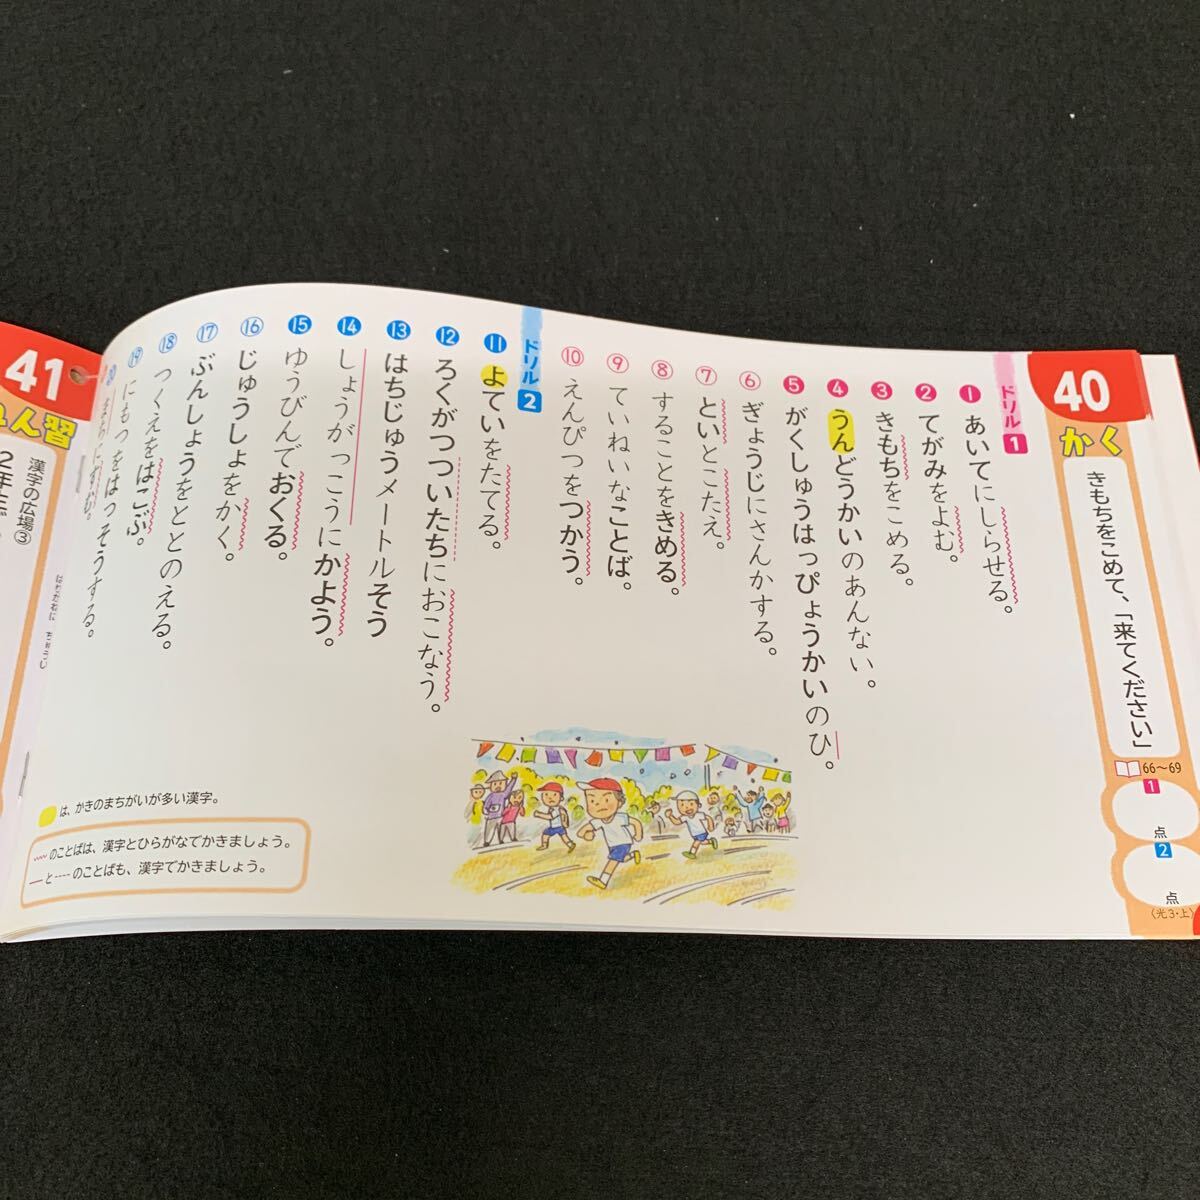 40
かく
きもちをこめて、「来てください」
66〜69
1
点
2
点
〈光3・上〉
ドリル1
❶ あいてにしらせる。
❷ てがみをよむ。
❸ きもちをこめる。
❹ うんどうかいのあんない。
❺ がくしゅうはっぴょうかいのひ。
⑥ ぎょうじにさんかする。
⑦ といとこたえ。
⑧ することをきめる。
⑨ ていねいなことば。
⑩ えんぴつをつかう。
ドリル2
⓫ よていをたてる。
⓬ ろくがつついたちにおこなう。
⓭ はちじゅうメートルそう
⓮ しょうがっこうにかよう。
⓯ ゆうびんでおくる。
⑯ じゅうしょをかく。
⑰ ぶんしょうをととのえる。
⑱ つくえをはこぶ。
⑲ にもつをはっそうする。
⓴ まちにすむ。
は、かきのまちがいが多い漢字。
のことばは、漢字とひらがなでかきましょう。
と のことばも、漢字でかきましょう。
41
人習
漢字の広場③